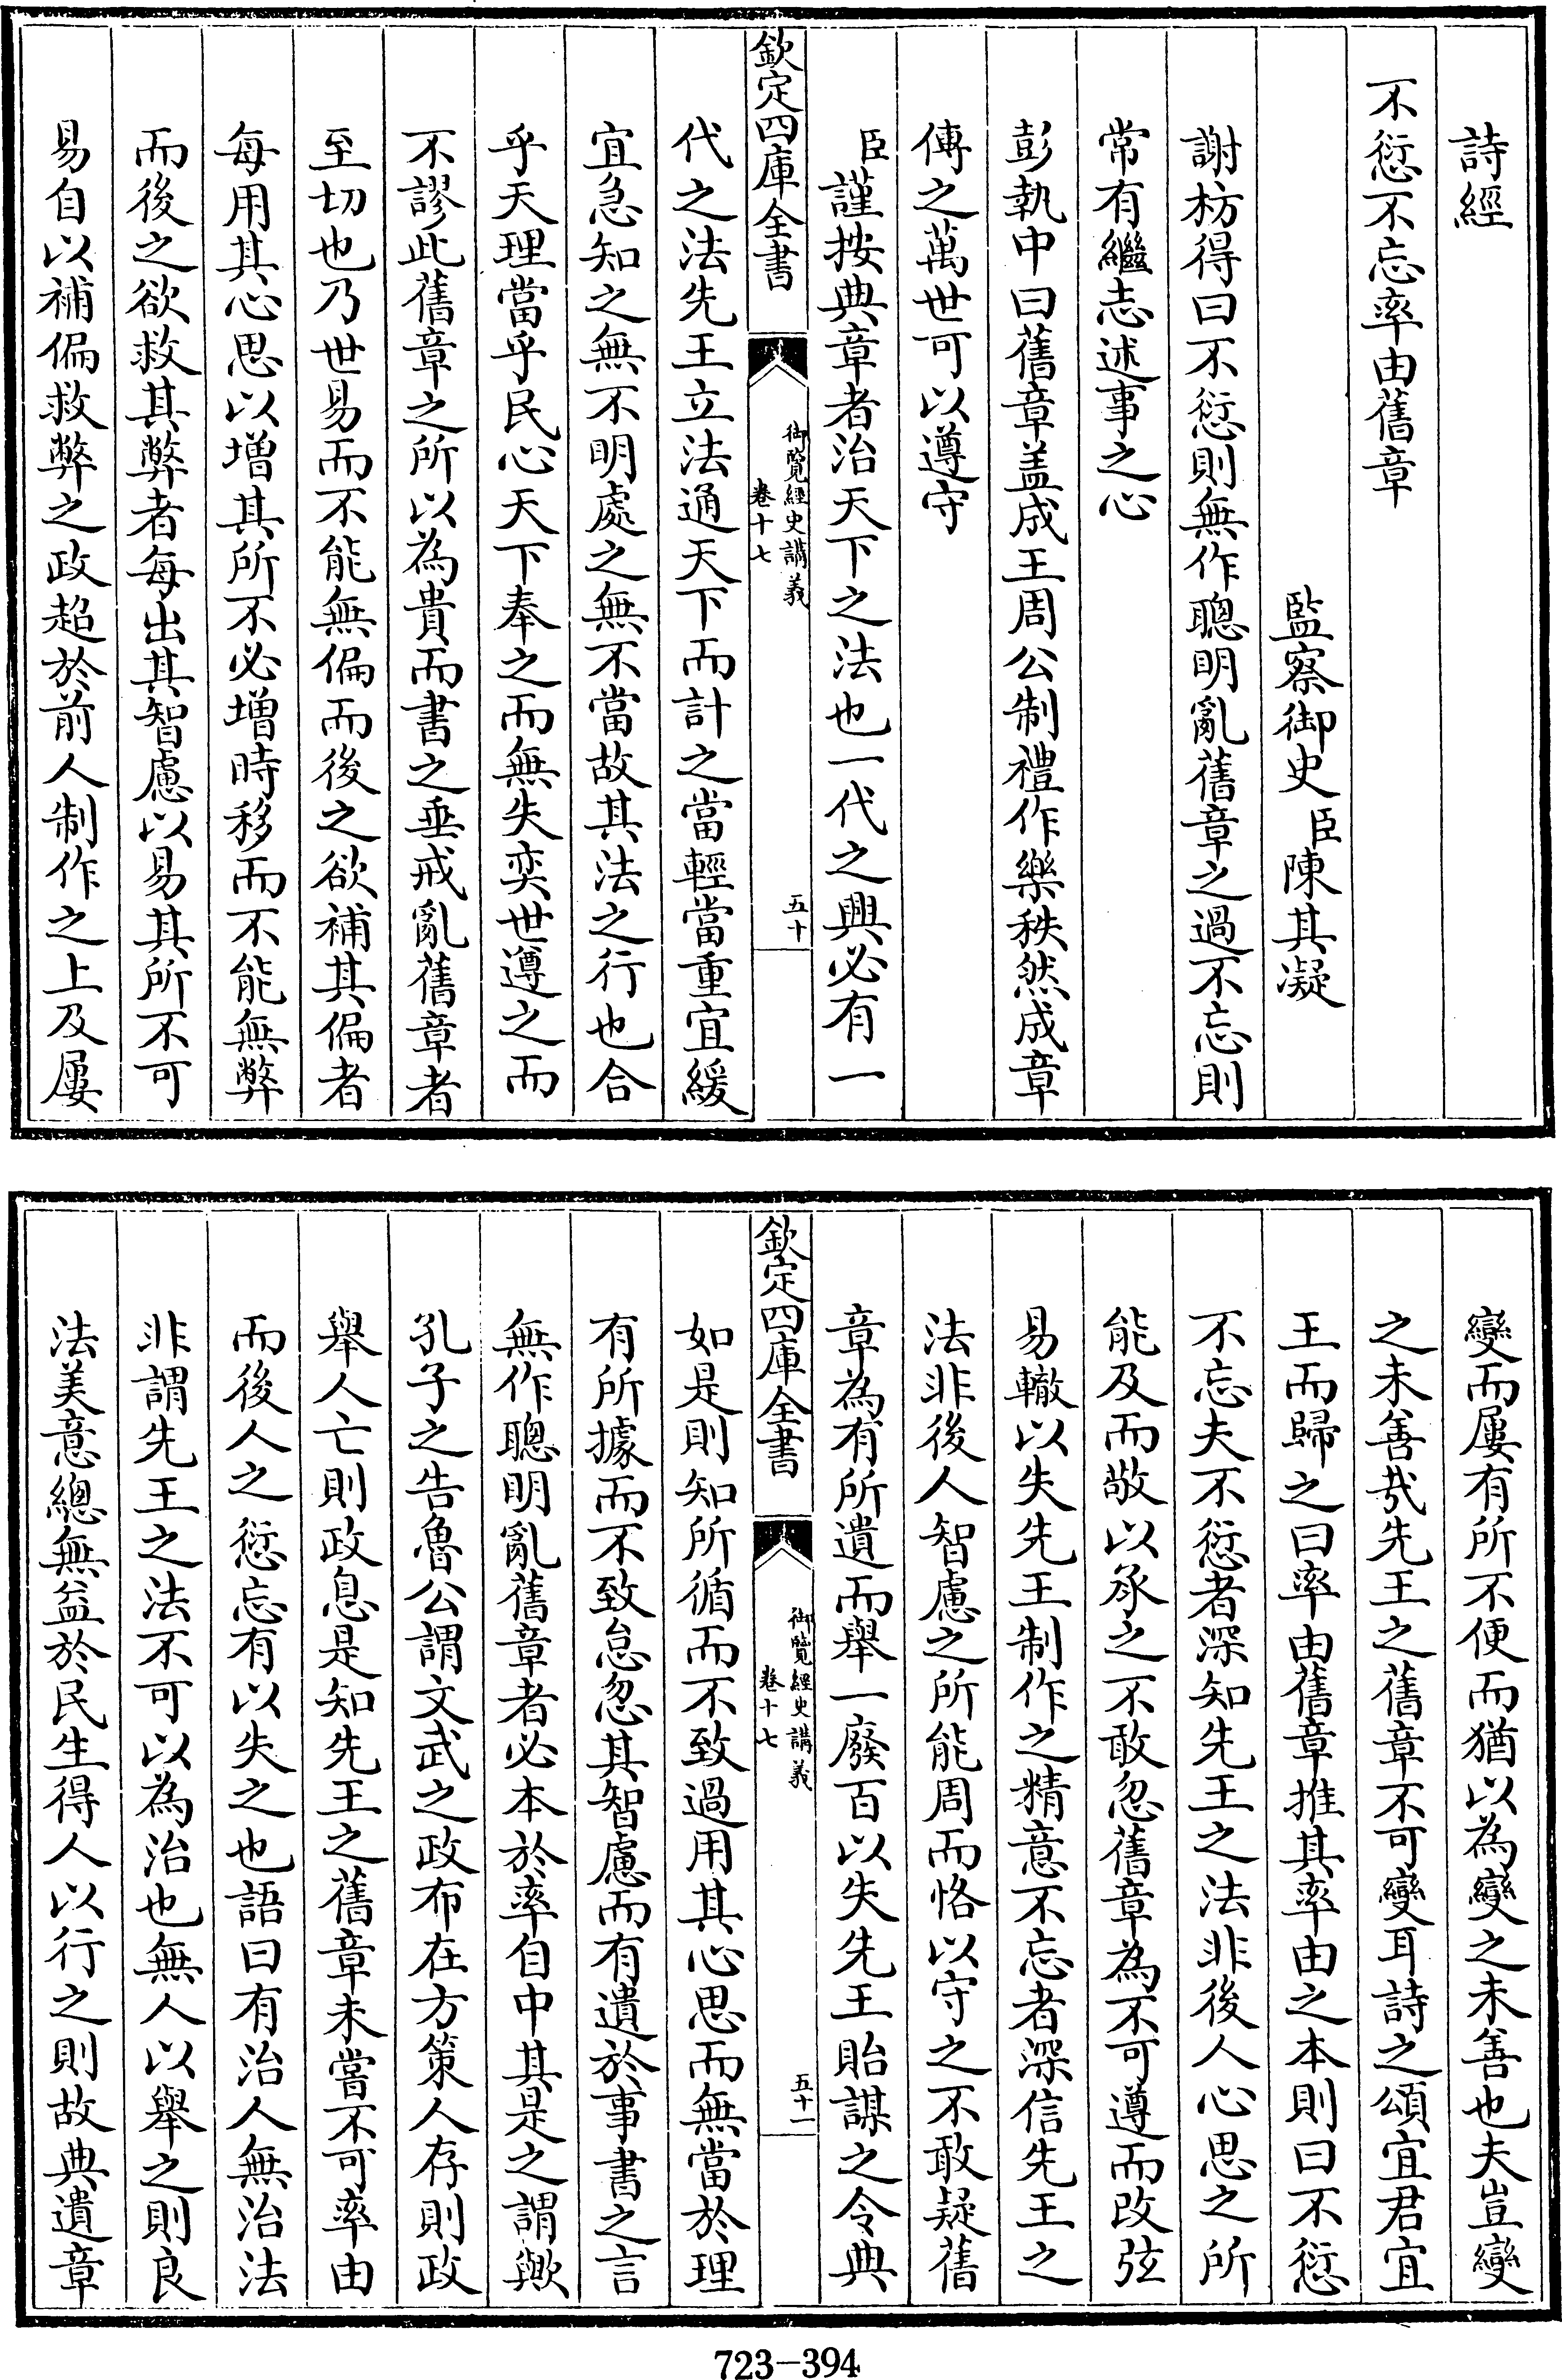 詩經
不愆不忘率由舊章
監察御史臣陳其凝
謝枋得曰不愆則無作聰明亂舊章之過不忘則
常有繼志述事之心
彭執中曰舊章盖成王周公制禮作樂秩然成章
傳之萬世可以遵守
臣謹按典章者治天下之法也一代之興必有一
欽定四庫全書
御覽經史講義
卷十七
五十
代之法先王立法通天下而計之當輕當重宜緩
宜急知之無不明處之無不當故其法之行也合
乎天理當乎民心天下奉之而無失奕世遵之而
不謬此舊章之所以為貴而書之垂戒亂舊章者
至切也乃世易而不能無偏而後之欲補其偏者
每用其心思以增其所不必增時移而不能無弊
而後之欲救其弊者每出其智慮以易其所不可
易自以補偏救弊之政超於前人制作之上及屢
變而屢有所不便而猶以為變之未善也夫豈變
之未善㢤先王之舊章不可變耳詩之頌宜君宜
王而歸之曰率由舊章推其率由之本則曰不愆
不忘夫不愆者深知先王之法非後人心思之所
能及而敬以承之不敢忽舊章為不可遵而改弦
易轍以失先王制作之精意不忘者深信先王之
法非後人智慮之所能周而恪以守之不敢疑舊
章為有所遺而舉一廢百以失先王貽謀之令典
欽定四庫全書
御覽經史講義
卷十七
五十一
如是則知所循而不致過用其心思而無當於理
有所據而不致怠忽其智慮而有遺於事書之言
無作聰明亂舊章者必本於率自中其是之謂歟
孔子之告魯公謂文武之政布在方策人存則政
舉人亡則政息是知先王之舊章未嘗不可率由
而後人之愆忘有以失之也語曰有治人無治法
非謂先王之法不可以為治也無人以舉之則良
法美意總無益於民生得人以行之則故典遺章
723-394